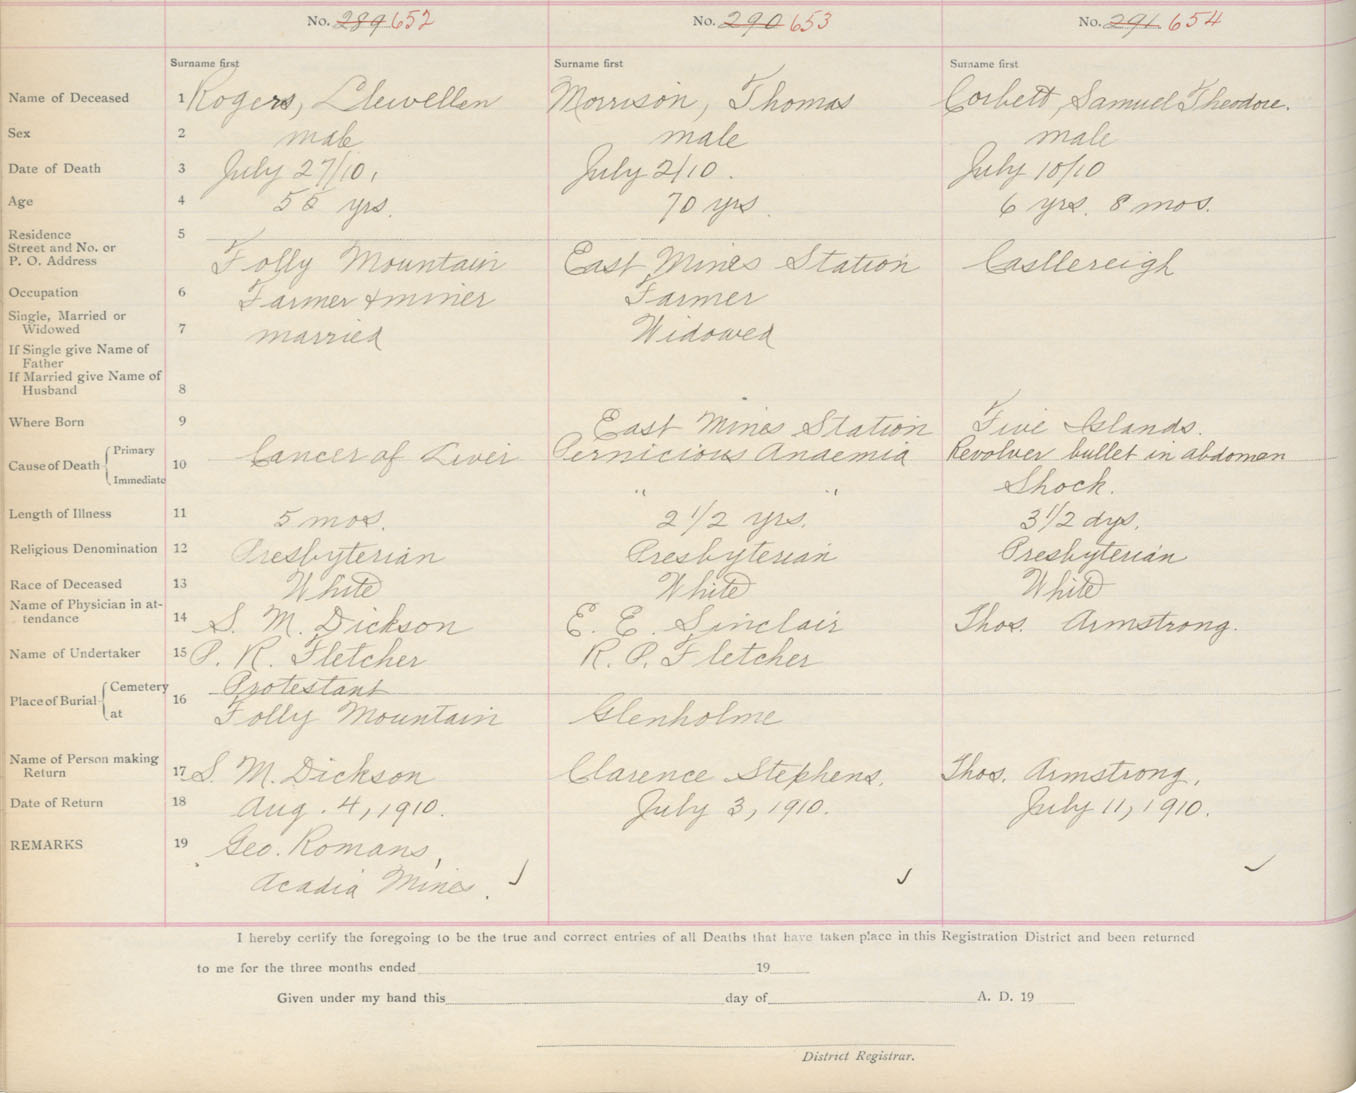 No. 289 652 No. 290 653 No. 291 654
Surname first Surname first Surname first
Name of Deceased 1 Rogers, Llewellen Morrison, Thomas Corbett, Samuel Theodore.
Sex 2 male male male
Date of Death 3 July 27/10, July 2/10. July 10/10
Age 4 yrs. 70 yrs. 6 yrs. 8 mos.
Residence 5
Street and No. or
P. O. Address Folly Mountain East Mines Station Castlereigh
Occupation 6 Farmer & miner Farmer
Single, Married or
Widowed 7 married Widowed
If Single give Name of
Father
If Married give Name of
Husband 8
Where Born 9 East Mines Station Five Islands.
Cause of Death Primary 10 Cancer of Liver Pernicious Anaemia Revolver bullet in abdomen
Immediate " " Shock.
Length of Illness 11 5 mos. 2 1/2 yrs. 3 1/2 dys.
Religious Denomination 12 Presbyterian Presbyterian Presbyterian
Race of Deceased 13 White White White
Name of Physician in at-
tendance 14 S. M. Dickson E. E. Sinclair Thos. Armstrong.
Name of Undertaker 15 P. R. Fletcher R. P. Fletcher
Place of Burial Cemetery 16 Protestant
at Folly Mountain Glenholme
Name of Person making
Return 17 S. M. Dickson Clarence Stephens. Thos. Armstrong.
Date of Return 18 Aug. 4, 1910. July 3, 1910. July 11, 1910.
REMARKS 19 Geo. Romans,
Acadia Mines.
I hereby certify the foregoing to be the true and correct entries of all Deaths that have taken place in this Registration District and been returned
to me for the three months ended 19
Given under my hand this day of A. D. 19
District Registrar.